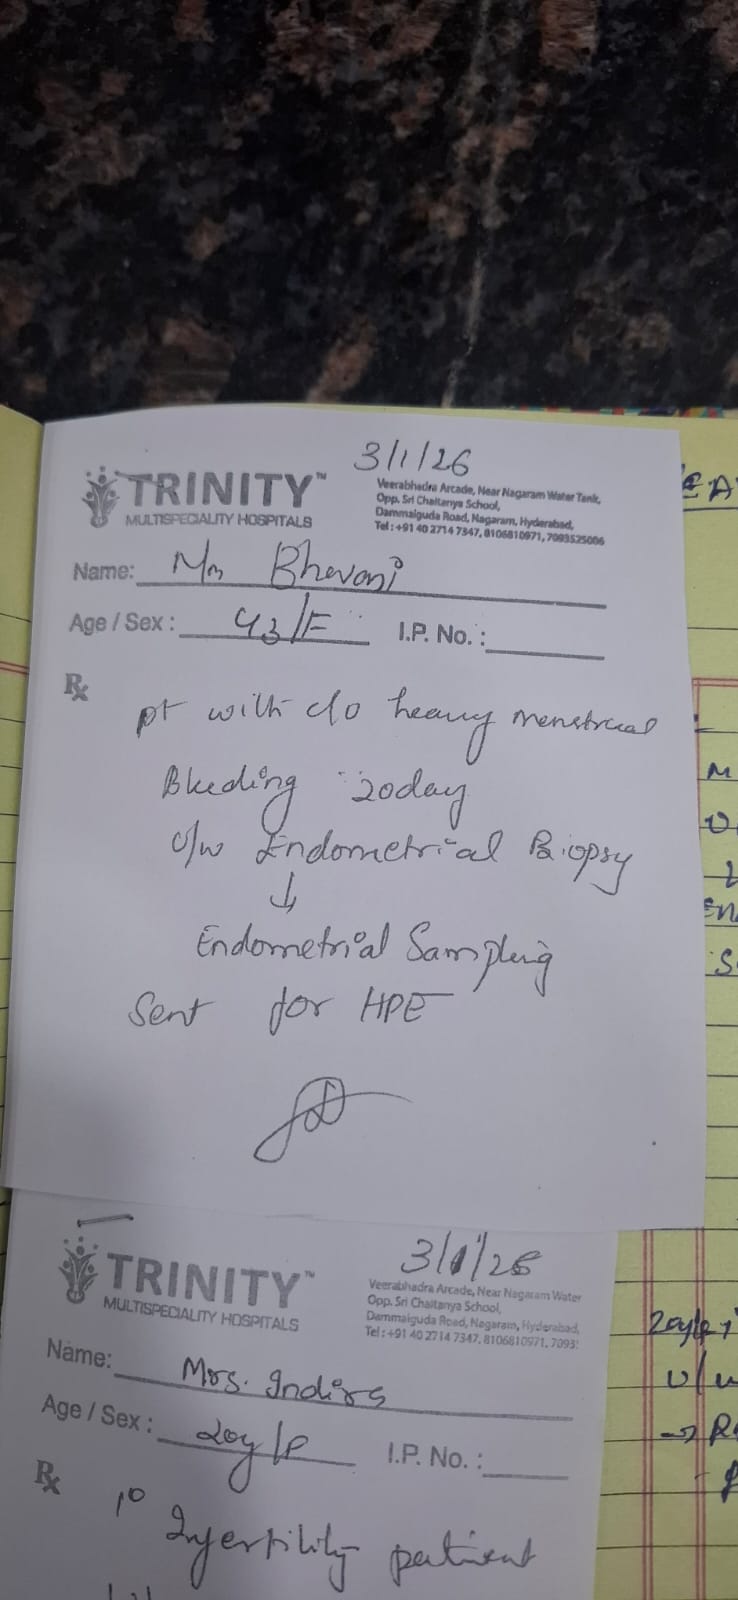 3/1/26
TRINITY™
MULTISPECIALITY HOSPITALS
Veerabhadra Arcade, Near Nagaram Water Tank,
Opp. Sri Chaitanya School,
Dammaiguda Road, Nagaram, Hyderabad,
Tel : +91 40 2714 7347, 8106810971, 7093525006
Name: Bhavani
Age / Sex : 43/F I.P. No. :
Rx
pt with c/o heavy menstrual
Bleeding 20day
u/w Endometrial Biopsy
↓
Endometrial Sampling
Sent for HPE
3/1/26
TRINITY™
MULTISPECIALITY HOSPITALS
Veerabhadra Arcade, Near Nagaram Water
Opp. Sri Chaitanya School,
Dammaiguda Road, Nagaram, Hyderabad,
Tel : +91 40 2714 7347, 8106810971, 7093
Name: Mrs. Indira
Age / Sex : 20y/F I.P. No. :
Rx
1° Infertility patient